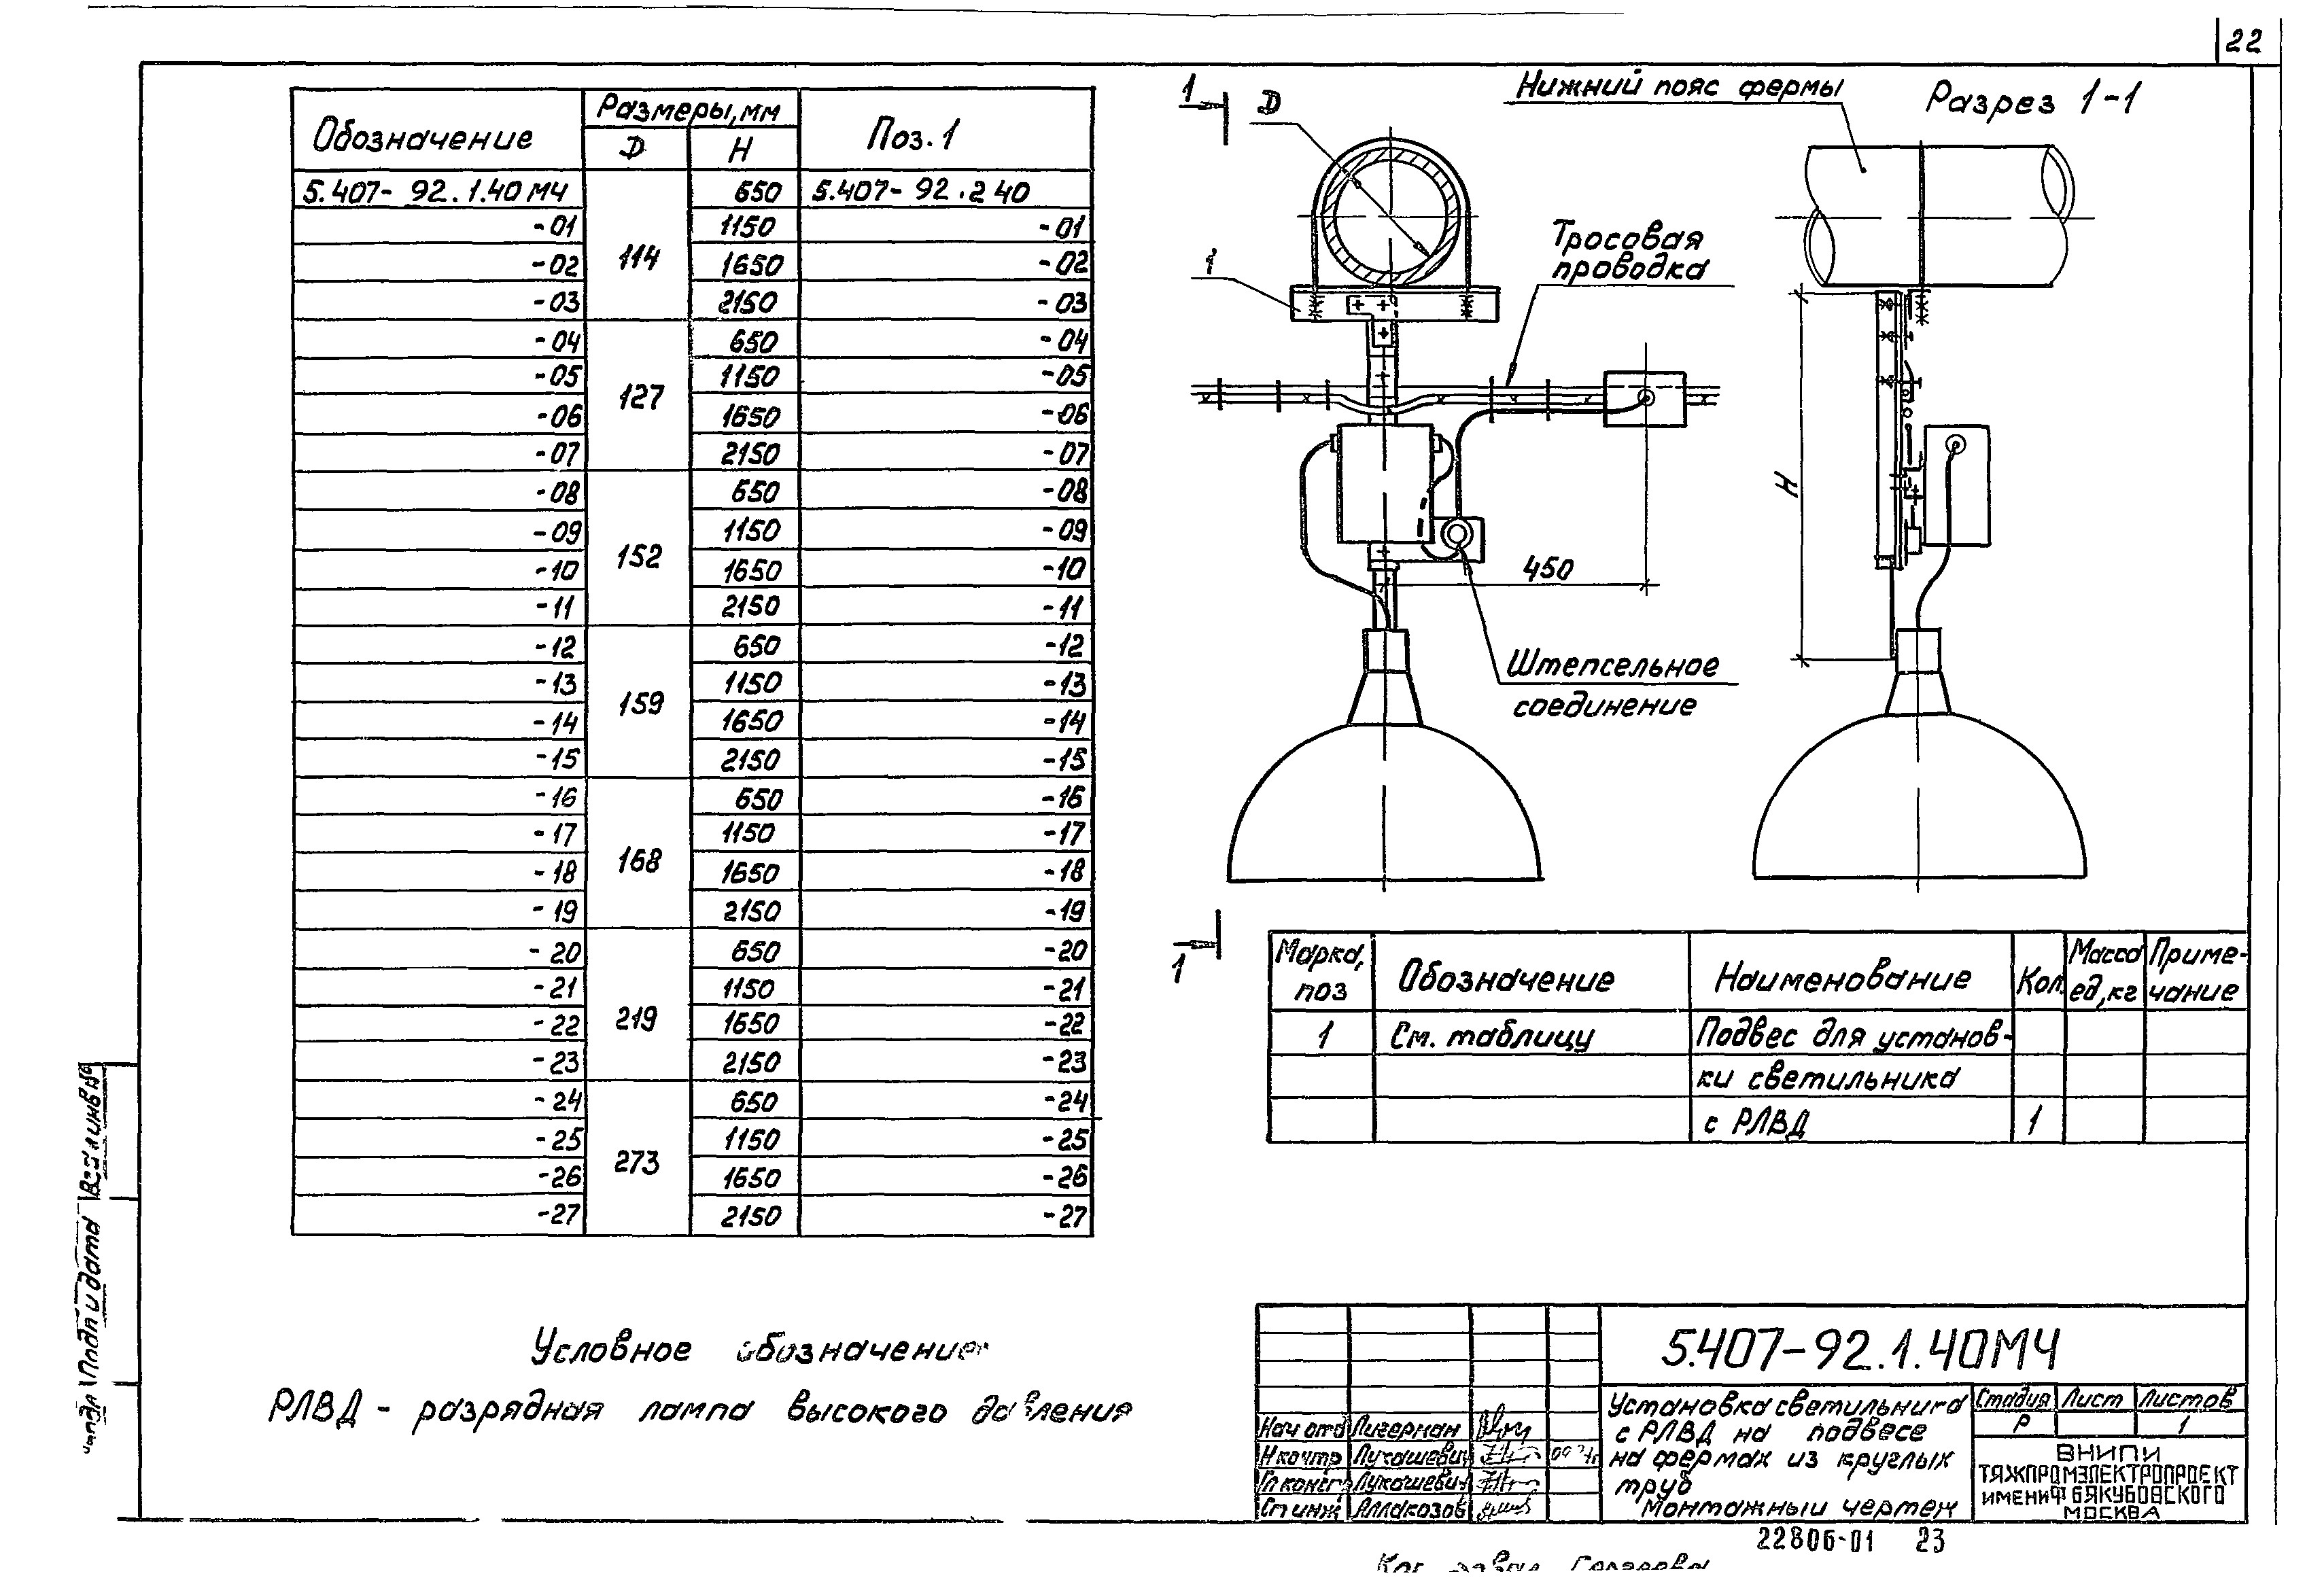 22
Обозначение
Размеры, мм
Поз. 1
D
H
5.407- 92.1.40 МЧ 114 650 5.407- 92.2 40
-01 1150 -01
-02 1650 -02
-03 2150 -03
-04 127 650 -04
-05 1150 -05
-06 1650 -06
-07 2150 -07
-08 152 650 -08
-09 1150 -09
-10 1650 -10
-11 2150 -11
-12 159 650 -12
-13 1150 -13
-14 1650 -14
-15 2150 -15
-16 168 650 -16
-17 1150 -17
-18 1650 -18
-19 2150 -19
-20 219 650 -20
-21 1150 -21
-22 1650 -22
-23 2150 -23
-24 273 650 -24
-25 1150 -25
-26 1650 -26
-27 2150 -27
Условное обозначение
РЛВД - разрядная лампа высокого давления
1
D
Нижний пояс фермы
Разрез 1-1
1
Тросовая
проводка
H
450
Штепсельное
соединение
1
Марка, поз
Обозначение
Наименование
Кол.
Масса ед, кг
Приме-чание
1 См. таблицу Подвес для установ-
ки светильника
с РЛВД 1
5.407-92.1.40МЧ
Установка светильника
с РЛВД на подвесе
на фермах из круглых
труб
Монтажный чертеж
Стадия Лист Листов
Р 1
ВНИПИ
ТЯЖПРОМЭЛЕКТРОПРОЕКТ
ИМЕНИ Ф Б ЯКУБОВСКОГО
МОСКВА
Нач отд Лигерман
Н контр Лукашевич
Гл констр Лукашевич
Ст инж Аллакозов
22806-01 23
Взам инв №
Подп и дата
подл